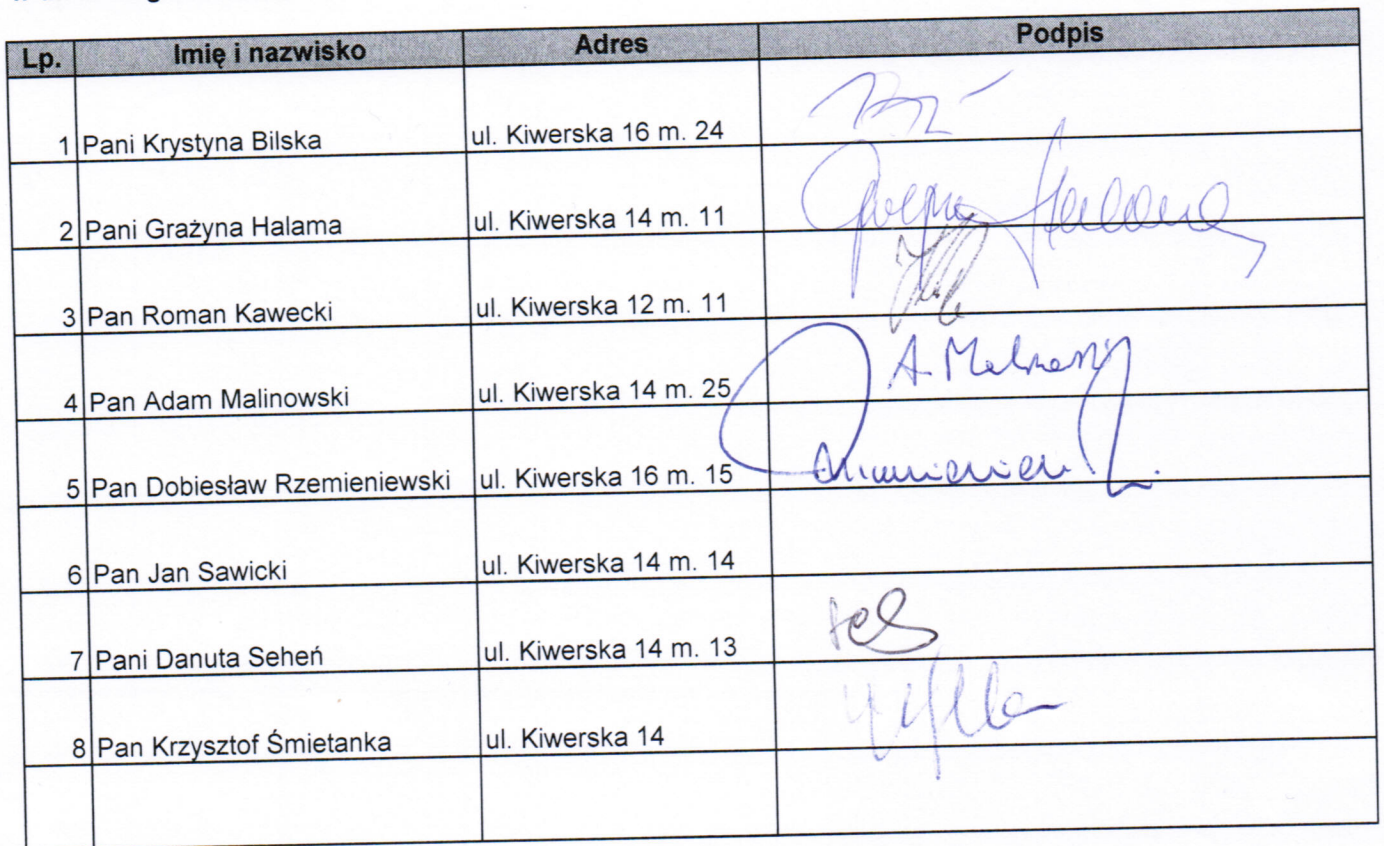 Lp. Imię i nazwisko Adres Podpis
1 Pani Krystyna Bilska ul. Kiwerska 16 m. 24
2 Pani Grażyna Halama ul. Kiwerska 14 m. 11
3 Pan Roman Kawecki ul. Kiwerska 12 m. 11
4 Pan Adam Malinowski ul. Kiwerska 14 m. 25
5 Pan Dobiesław Rzemieniewski ul. Kiwerska 16 m. 15
6 Pan Jan Sawicki ul. Kiwerska 14 m. 14
7 Pani Danuta Seheń ul. Kiwerska 14 m. 13
8 Pan Krzysztof Śmietanka ul. Kiwerska 14